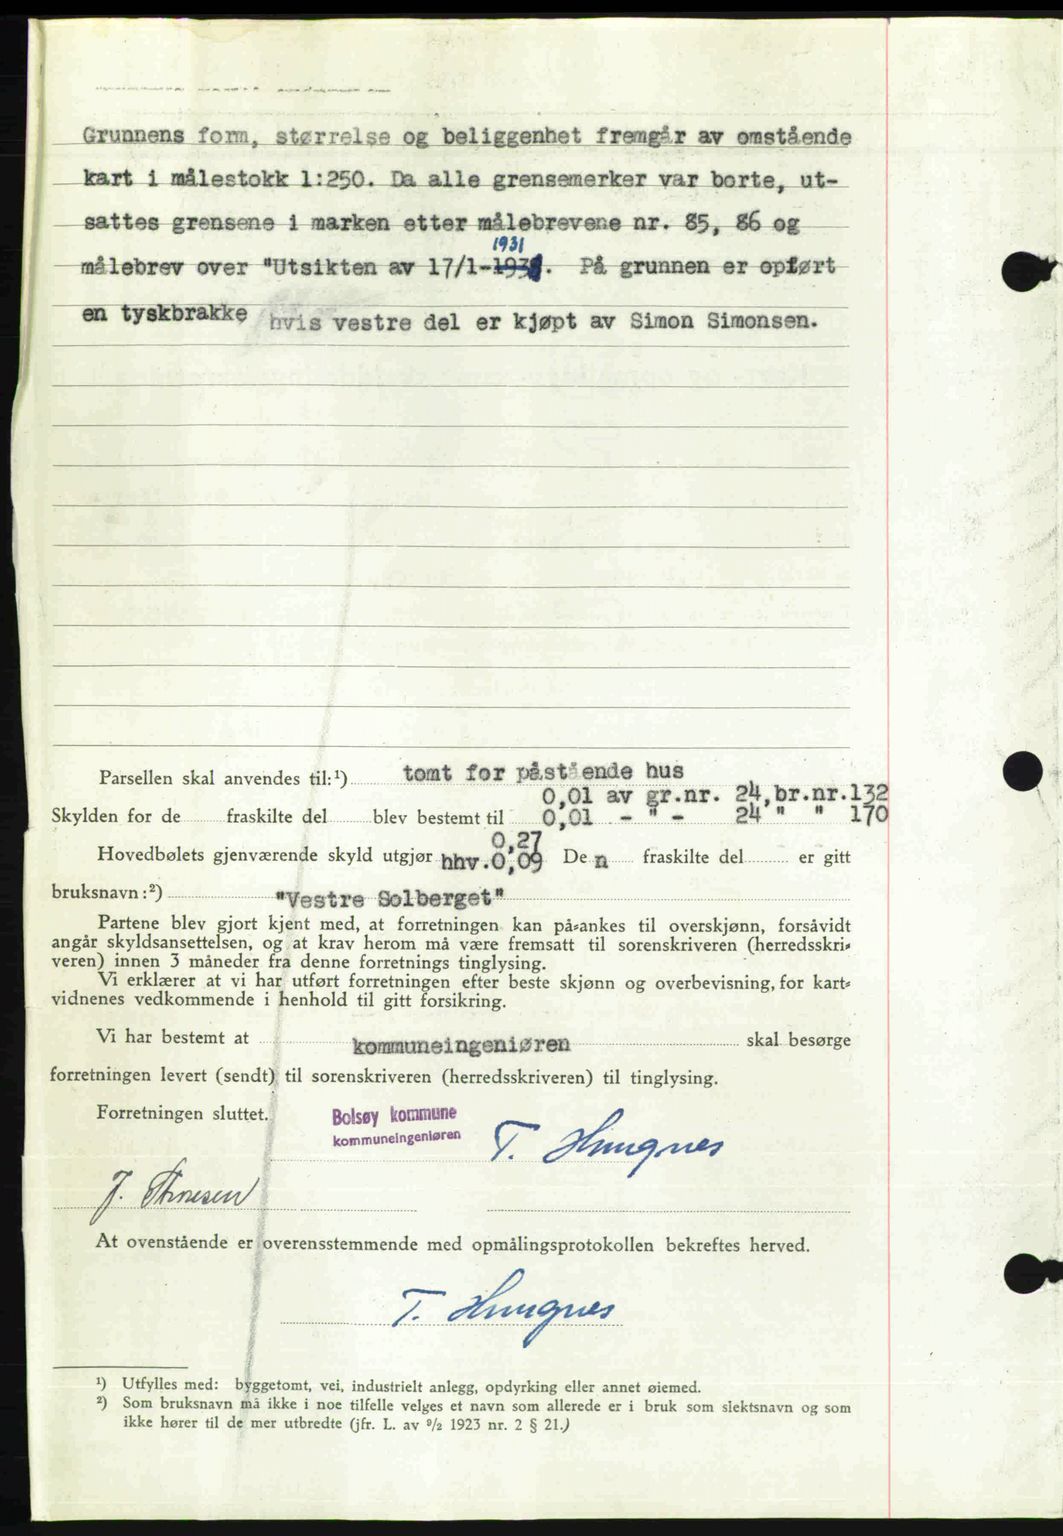 Grunnens form, størrelse og beliggenhet fremgår av omstående
kart i målestokk 1:250. Da alle grensemerker var borte, ut-
sattes grensene i marken etter målebrevene nr. 85, 86 og
1931
målebrev over "Utsikten av 17/1-193. På grunnen er opført
en tyskbrakke hvis vestre del er kjøpt av Simon Simonsen.
Parsellen skal anvendes til:¹) tomt for påstående hus
0,01 av gr.nr. 24, br.nr. 132
Skylden for de fraskilte del blev bestemt til 0,01 - " - 24 " " 170
0,27
Hovedbølets gjenværende skyld utgjør hhv. 0,09 Den fraskilte del er gitt
bruksnavn:²) "Vestre Solberget"
Partene blev gjort kjent med, at forretningen kan på-ankes til overskjønn, forsåvidt
angår skyldsansettelsen, og at krav herom må være fremsatt til sorenskriveren (herredsskri-
veren) innen 3 måneder fra denne forretnings tinglysing.
Vi erklærer at vi har utført forretningen efter beste skjønn og overbevisning, for kart-
vidnenes vedkommende i henhold til gitt forsikring.
Vi har bestemt at kommuneingeniøren skal besørge
forretningen levert (sendt) til sorenskriveren (herredsskriveren) til tinglysing.
Forretningen sluttet. Bolsøy kommune
kommuneingeniøren T. Hungnes
J.
At ovenstående er overensstemmende med opmålingsprotokollen bekreftes herved.
T. Hungnes
¹) Utfylles med: byggetomt, vei, industrielt anlegg, opdyrking eller annet øiemed.
²) Som bruksnavn må ikke i noe tilfelle velges et navn som allerede er i bruk som slektsnavn og som
ikke hører til de mer utbredte (jfr. L. av 9/2 1923 nr. 2 § 21.)